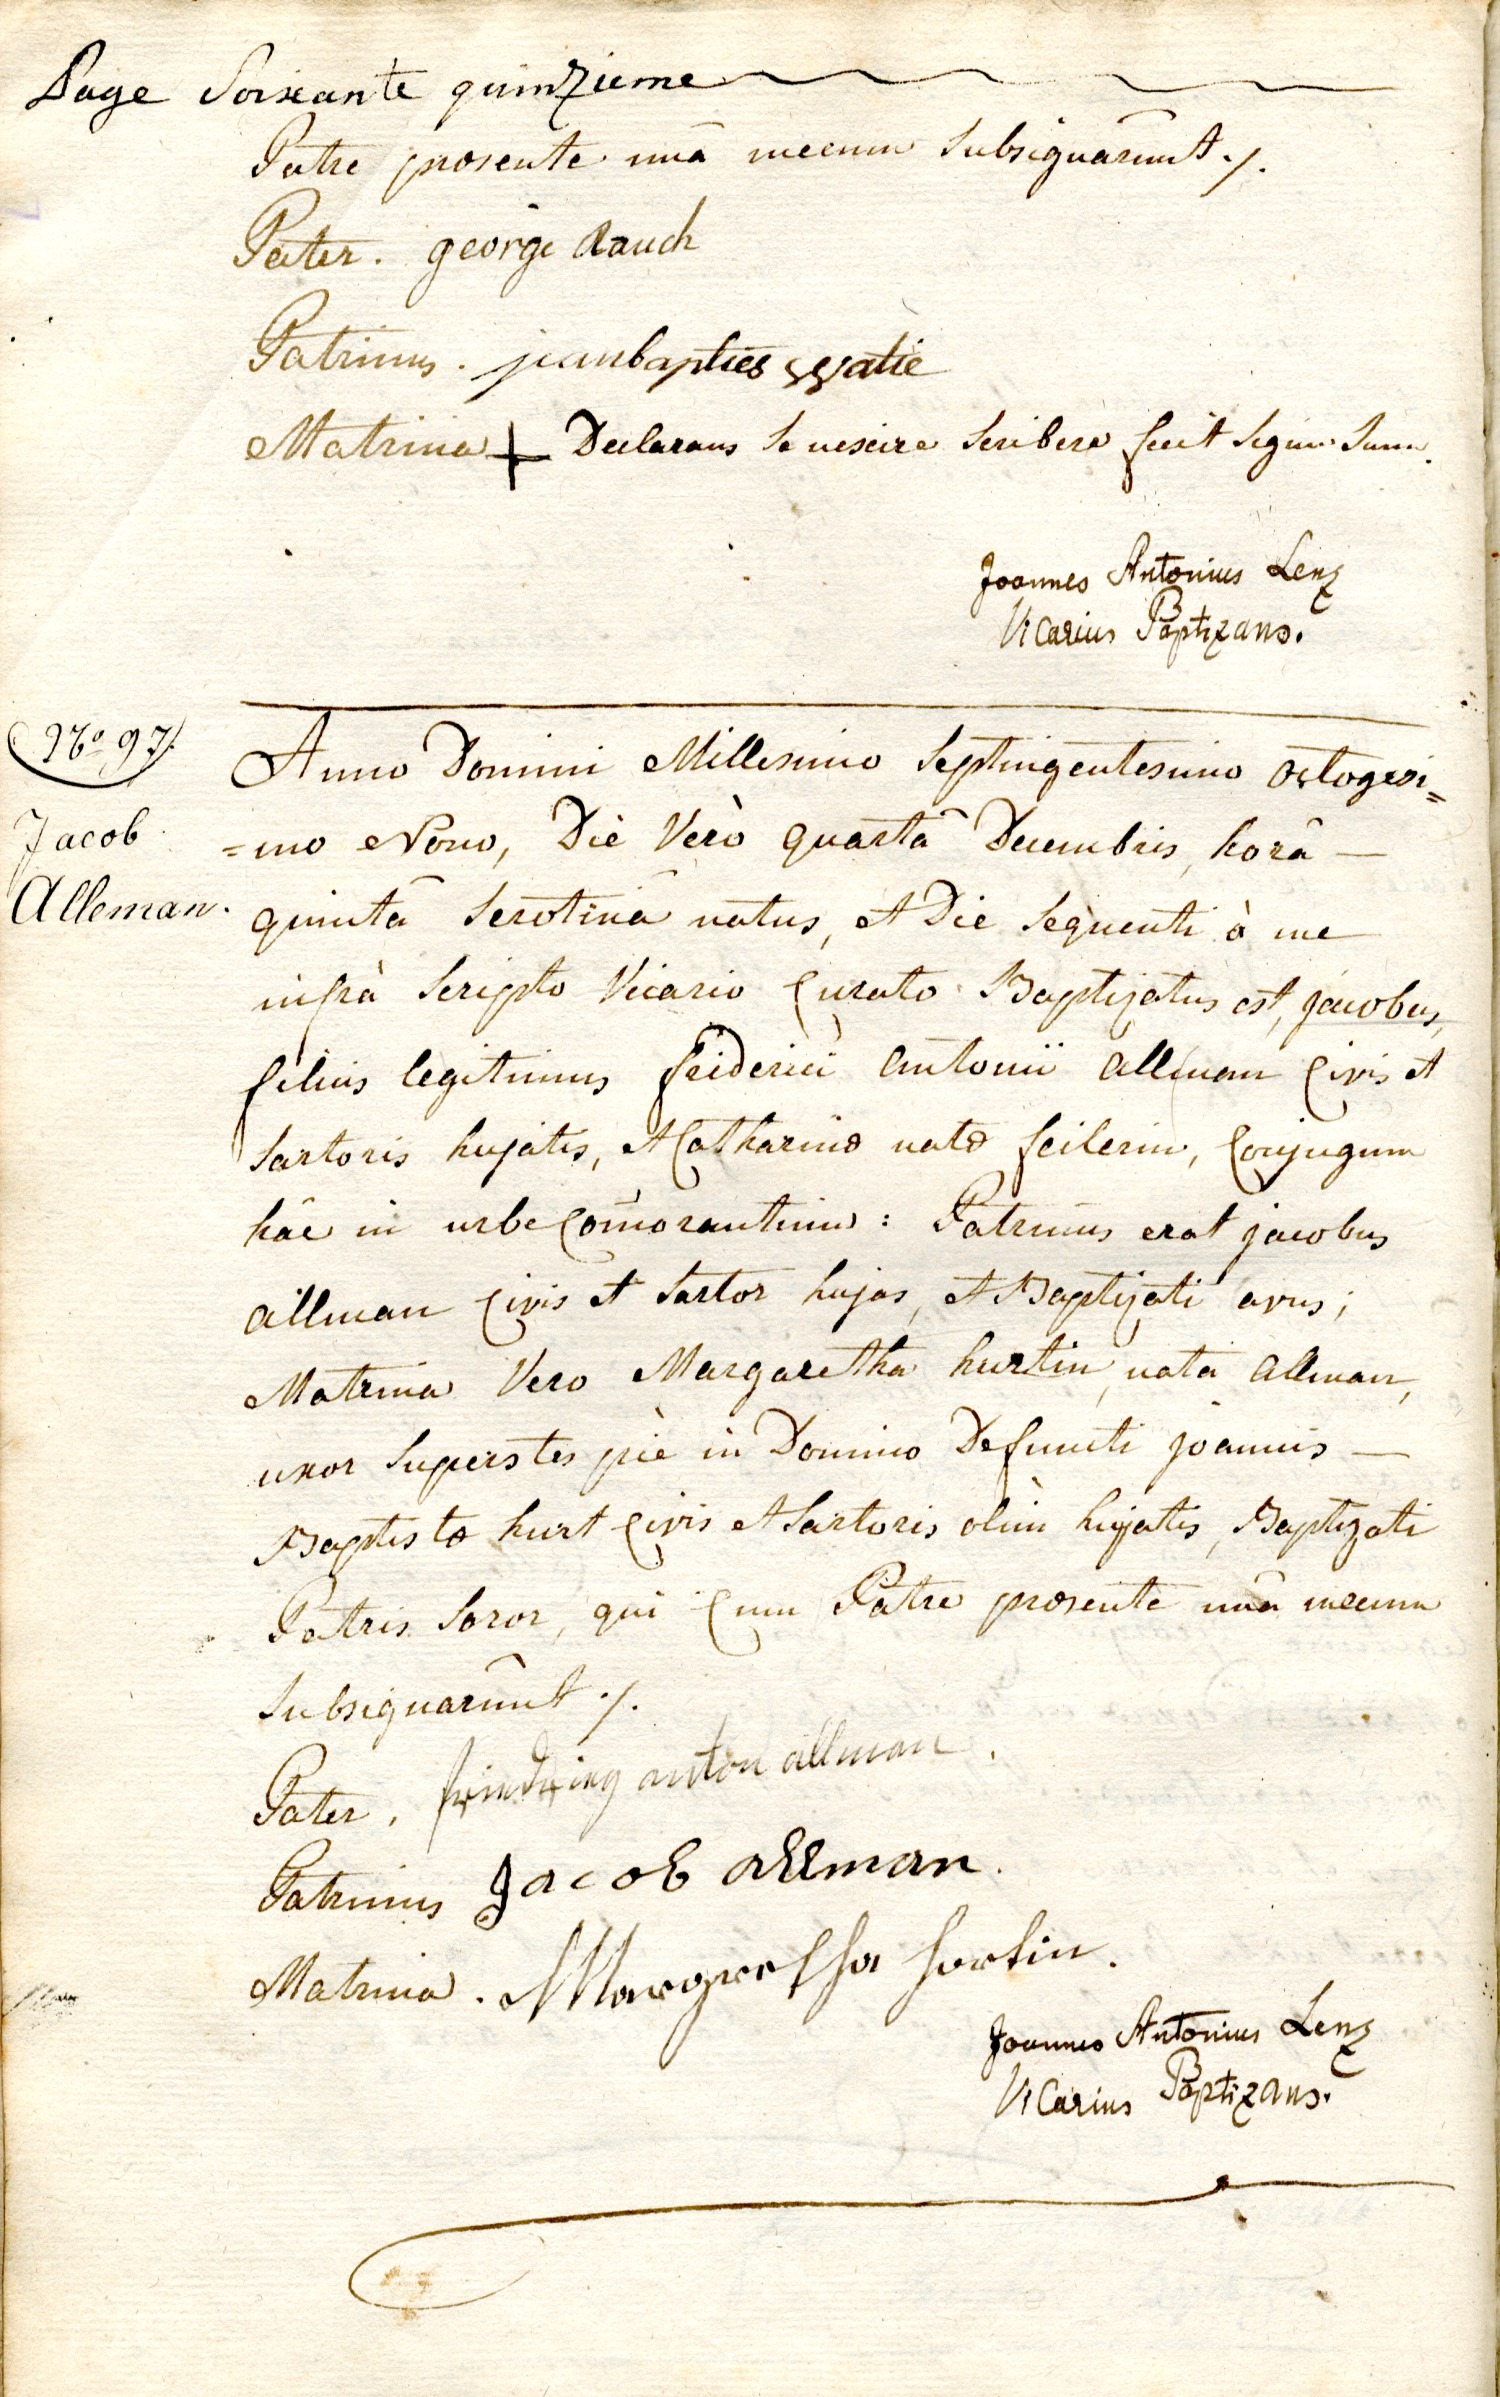 Page Soixante quinzieme
Patre præsente unâ mecum Subsignarûnt ./.
Pater. george Rauch
Patrinus. jeanbapties
Matrina + Declarans se nescire scribere fecit Signum Suum.
Joannes Antonius Lenz
Vicarius Baptizans.
No 97.
Jacob
Alleman.
Anno Domini Millesimo Septingentesimo Octogesi=
=mo Nono, Die Verò quartâ Decembris, horâ —
quintâ Serotinâ natus, et Die Sequenti à me
infrà Scripto Vicario Curato Baptizatus est, jacobus,
filius legitimus friderici antonii allman Civis et
Sartoris hujatis, et Catharinæ natæ feilerin, Conjugum
hâc in urbe Com̄orantium : Patrinus erat jacobus
allman Civis et Sartor hujas, et Baptizati avus;
Matrina Vero Margaretha hurtin, nata allman,
uxor Superstes piè in Domino Defuncti joannis —
Baptistæ hurt Civis et Sartoris olim hujatis, Baptizati
Patris Soror, qui Cum Patre præsente unâ mecum
Subsignarûnt ./.
Pater. anton allman.
Patrinus Jacob allman.
Matrina. Margretha hortin.
Joannes Antonius Lenz
Vicarius Baptizans.